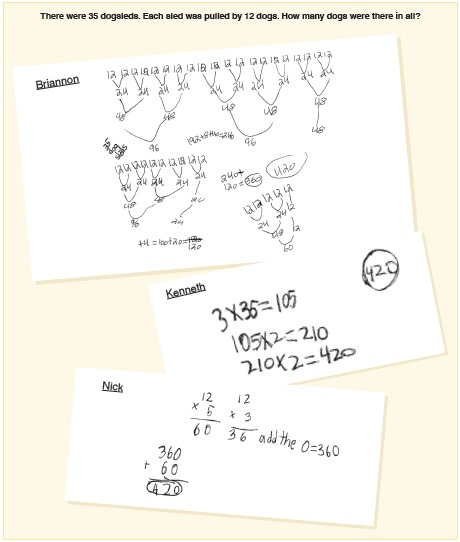 There were 35 dogsleds. Each sled was pulled by 12 dogs. How many dogs were there in all?
Briannon
12 12 12 12 12 12 12 12 12 12 12 12 12 12 12 12 12 12
24 24 24 24 24 24 24 24 24
48 48 48 48 48
96 96 48
12 12 12 12 12 12 12 12 12
24 24 24 24
48 48
96
240+
120=360
420
12 12 12 12 12
24 24 12
48 12
60
Kenneth
420
3x35=105
105x2=210
210x2=420
Nick
12 12
x 5 x 3
60 36 add the 0=360
360
+ 60
420